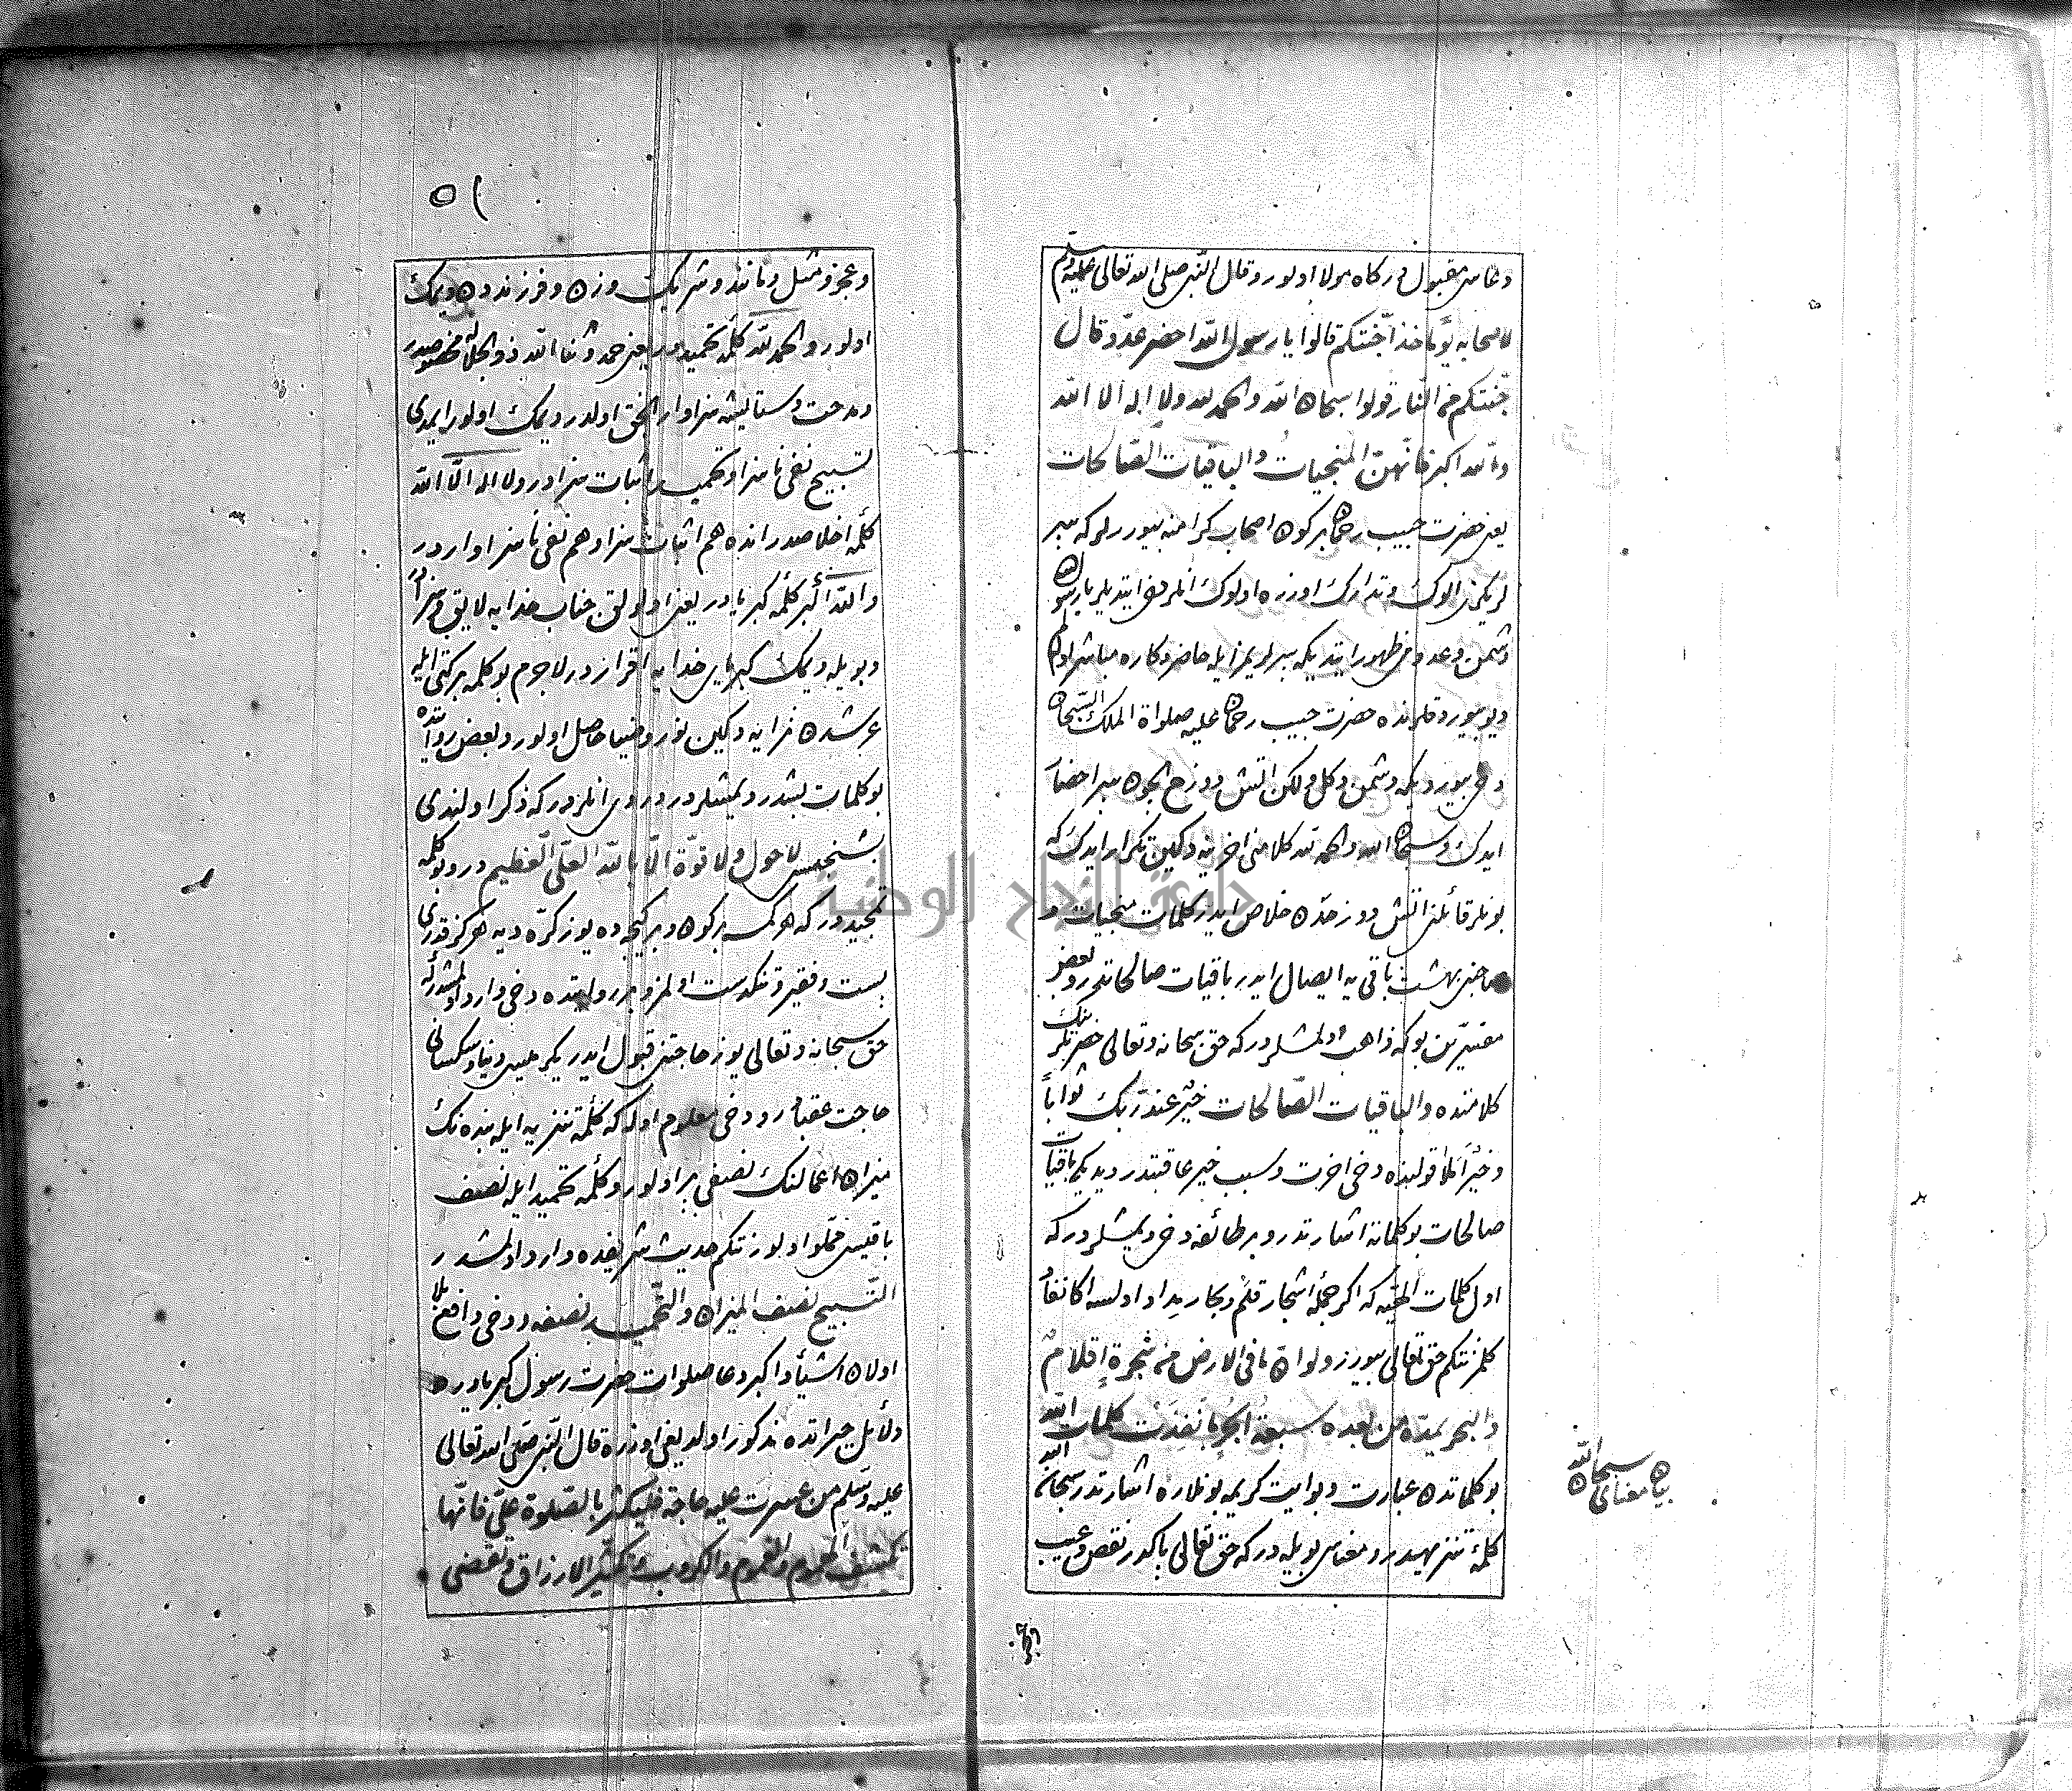 دعاسی مقبول درکاه مولا اولور وقال النبی صلی الله تعالی علیه وسلم
لاصحابه یوما خذوا جنتکم قالوا یا رسول الله احضر عدو قال
جنتکم من النار قولوا سبحان الله والحمد لله ولا اله الا الله
والله اکبر فانهن المنجیات والباقیات الصالحات
یعنی حضرت حبیب رحمان برکون اصحاب کرامنه بیوررلر که سپر
لریکزی الوک وتدارک اوزره اولوک انلر دخی ایتدیلر یا رسول الله
دشمن وعدومی ظهور ایتدیکه سپرلریمز ایله حاضر وکاره مباشر اولم
دیو بیوردقلرنده حضرت حبیب رحمان علیه صلواة الملک السبحان
دخی بیوردیکه دشمن دکل ولکن اتش دوزخ ایچون سپر احضار
ایدک وسبحان الله والحمد لله کلامنی اخرینه دکین تکرار ایدک که
بونلر قائلنی اتش دوزخدن خلاص ایدر کلمات منجیات و
صاحبنی بهشت باقی یه ایصال ایدر باقیات صالحاتدر وبعض
مفسرین بوکه ذاهب اولمشلردر که حق سبحانه وتعالی حضرتلرینک
کلامنده والباقیات الصالحات خیر عند ربک ثوابا
وخیر املا قولنده دخی اخرت وسبب خیر عاقبتدر دیدیکی باقیات
صالحات بو کلماته اشارتدر وبر طائفه دخی دیمشلردر که
اول کلمات الهیه که اکر جمله اشجار قلم وبحار مداد اولسه اکا نفاد
کلمز نتکم حق تعالی بیورر ولو ان ما فی الارض من شجرة اقلام
والبحر یمده من بعده سبعة ابحر ما نفدت کلمات الله
بو کلماتدن عبارت وبو ایت کریمه بونلاره اشارتدر سبحان الله
کلمۀ تنزیهیدر ومعناسی بویله در که حق تعالی پاکدر نقص وعیب
بیان معنای سبحان الله
۵۱
وعجز ومثل ومانند وشریک وزن وفرزنددن دیمک
اولور والحمد لله کلمه تحمیددر یعنی حمد وثنا الله ذو الجلاله مخصوصدر
ومدحت وستایشه سزاوار الحق اولدر دیمک اولور ایمدی
تسبیح نفی ناسزا وتحمید اثبات سزادر ولا اله الا الله
کلمه اخلاصدر انده هم اثبات سزا وهم نفی ناسزا واردر
والله اکبر کلمه کبریادر یعنی اولولق جناب خدایه لایق وسزادر
وبویله دیمک کبریای خدایه اقراردر لاجرم بو کلمه برکتی ایله
عرشدن ثرایه دکین نور وضیا حاصل اولور وبعض روایتده
بو کلمات بشدر دیمشلردر دردی انلردر که ذکر اولندی
بشنجیسی لا حول ولا قوة الا بالله العلی العظیم در وبو کلمه
تمجیددر که هر کمسه برکون وبر کیجه ده یوز کره دیه هرکز قدری
پست وفقیر وتنکدست اولمز وبر روایتده دخی وارد اولمشدر که
حق سبحانه وتعالی یوز حاجتنی قبول ایدر یکرمیسی دنیا وسکسانی
حاجت عقبادر ودخی معلوم اوله که کلمه تنزیه ایله بنده نک
میزان اعمالنک نصفی پر اولور وکلمه تحمید ایله نصف
باقیسی مملو اولور نتکم حدیث شریفده وارد اولمشدر
التسبیح نصف المیزان والتحمید نصفه ودخی دافع بلا
اولان اشیأ واکبر دعا صلوات حضرت رسول کبریادرن
دلائل خیراتده مذکور اولدیغی اوزره قال النبی صلی الله تعالی
علیه وسلم من عسرت علیه حاجة فلیکثر بالصلوة علی فانها
تکشف الهموم والغموم والکروب وتکثر الارزاق وتقضی
جامعة النجاح الوطنية